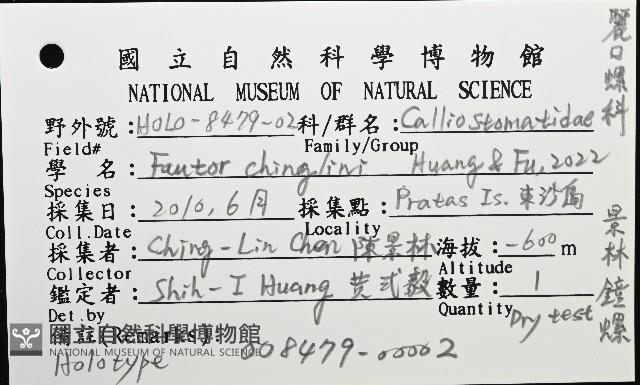 國立自然科學博物館
NATIONAL MUSEUM OF NATURAL SCIENCE
野外號：HOLO-8479-02 科/群名：Calliostomatidae
Field# Family/Group
學 名：Fautor chinglini Huang & Fu, 2022
Species
採集日：2010, 6月 採集點：Pratas Is. 東沙島
Coll.Date Locality
採集者：Ching-Lin Chen 陳景林 海拔：-600 m
Collector Altitude
鑑定者：Shih-I Huang 黃式毅 數量：1
Det.by Quantity Dry test
(Remarks)
國立自然科學博物館
NATIONAL MUSEUM OF NATURAL SCIENCE
Holotype 008479-00002
麗口螺科 景林鐘螺